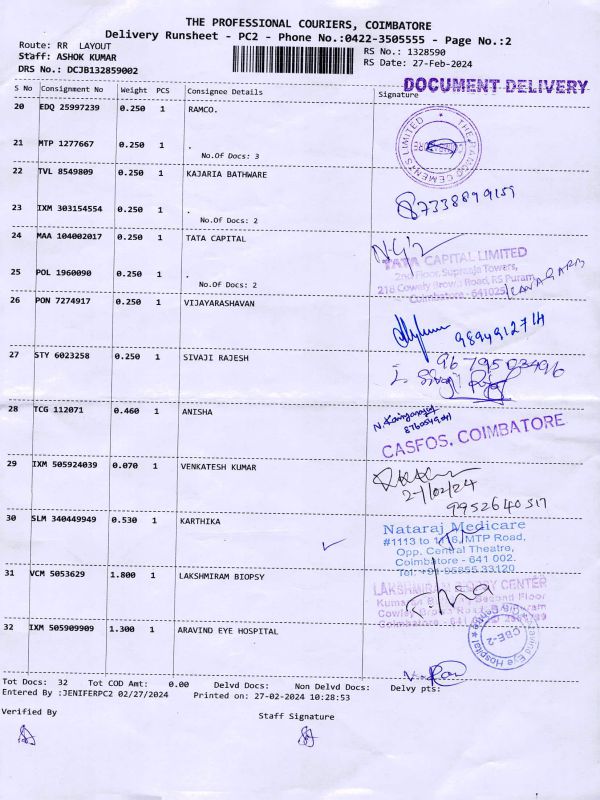 THE PROFESSIONAL COURIERS, COIMBATORE
Delivery Runsheet - PC2 - Phone No.:0422-3505555 - Page No.:2
Route: RR LAYOUT
Staff: ASHOK KUMAR
DRS No.: DCJB132859002
RS No.: 1328590
RS Date: 27-Feb-2024
DOCUMENT DELIVERY
S No Consignment No Weight PCS Consignee Details Signature
20 EDQ 25997239 0.250 1 RAMCO.
21 MTP 1277667 0.250 1 .
No.Of Docs: 3
22 TVL 8549809 0.250 1 KAJARIA BATHWARE
23 IXM 303154554 0.250 1 .
No.Of Docs: 2
7338899159
24 MAA 104002017 0.250 1 TATA CAPITAL
TATA CAPITAL LIMITED
2nd Floor, Supraaja Towers,
218 Cowely Brown Road, RS Puram,
Coimbatore - 641025
25 POL 1960090 0.250 1 .
No.Of Docs: 2
26 PON 7274917 0.250 1 VIJAYARASHAVAN
27 STY 6023258 0.250 1 SIVAJI RAJESH
9679503496
28 TCG 112071 0.460 1 ANISHA
CASFOS, COIMBATORE
29 IXM 505924039 0.070 1 VENKATESH KUMAR
27/02/24
9952640517
30 SLM 340449949 0.530 1 KARTHIKA
Nataraj Medicare
#1113 to 1116, MTP Road,
Opp. Central Theatre,
Coimbatore - 641 002.
31 VCM 5053629 1.800 1 LAKSHMIRAM BIOPSY
LAKSHMIRAM BIOPSY CENTER
32 IXM 505909909 1.300 1 ARAVIND EYE HOSPITAL
Tot Docs: 32 Tot COD Amt: 0.00 Delvd Docs: Non Delvd Docs: Delvy pts:
Entered By :JENIFERPC2 02/27/2024 Printed on: 27-02-2024 10:28:53
Verified By
Staff Signature